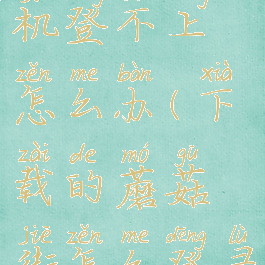 机登不上
zěn me bàn xià
怎么办(下
zài de mó gū
载的蘑菇
jiē zěn me dēng lù
街怎么登录